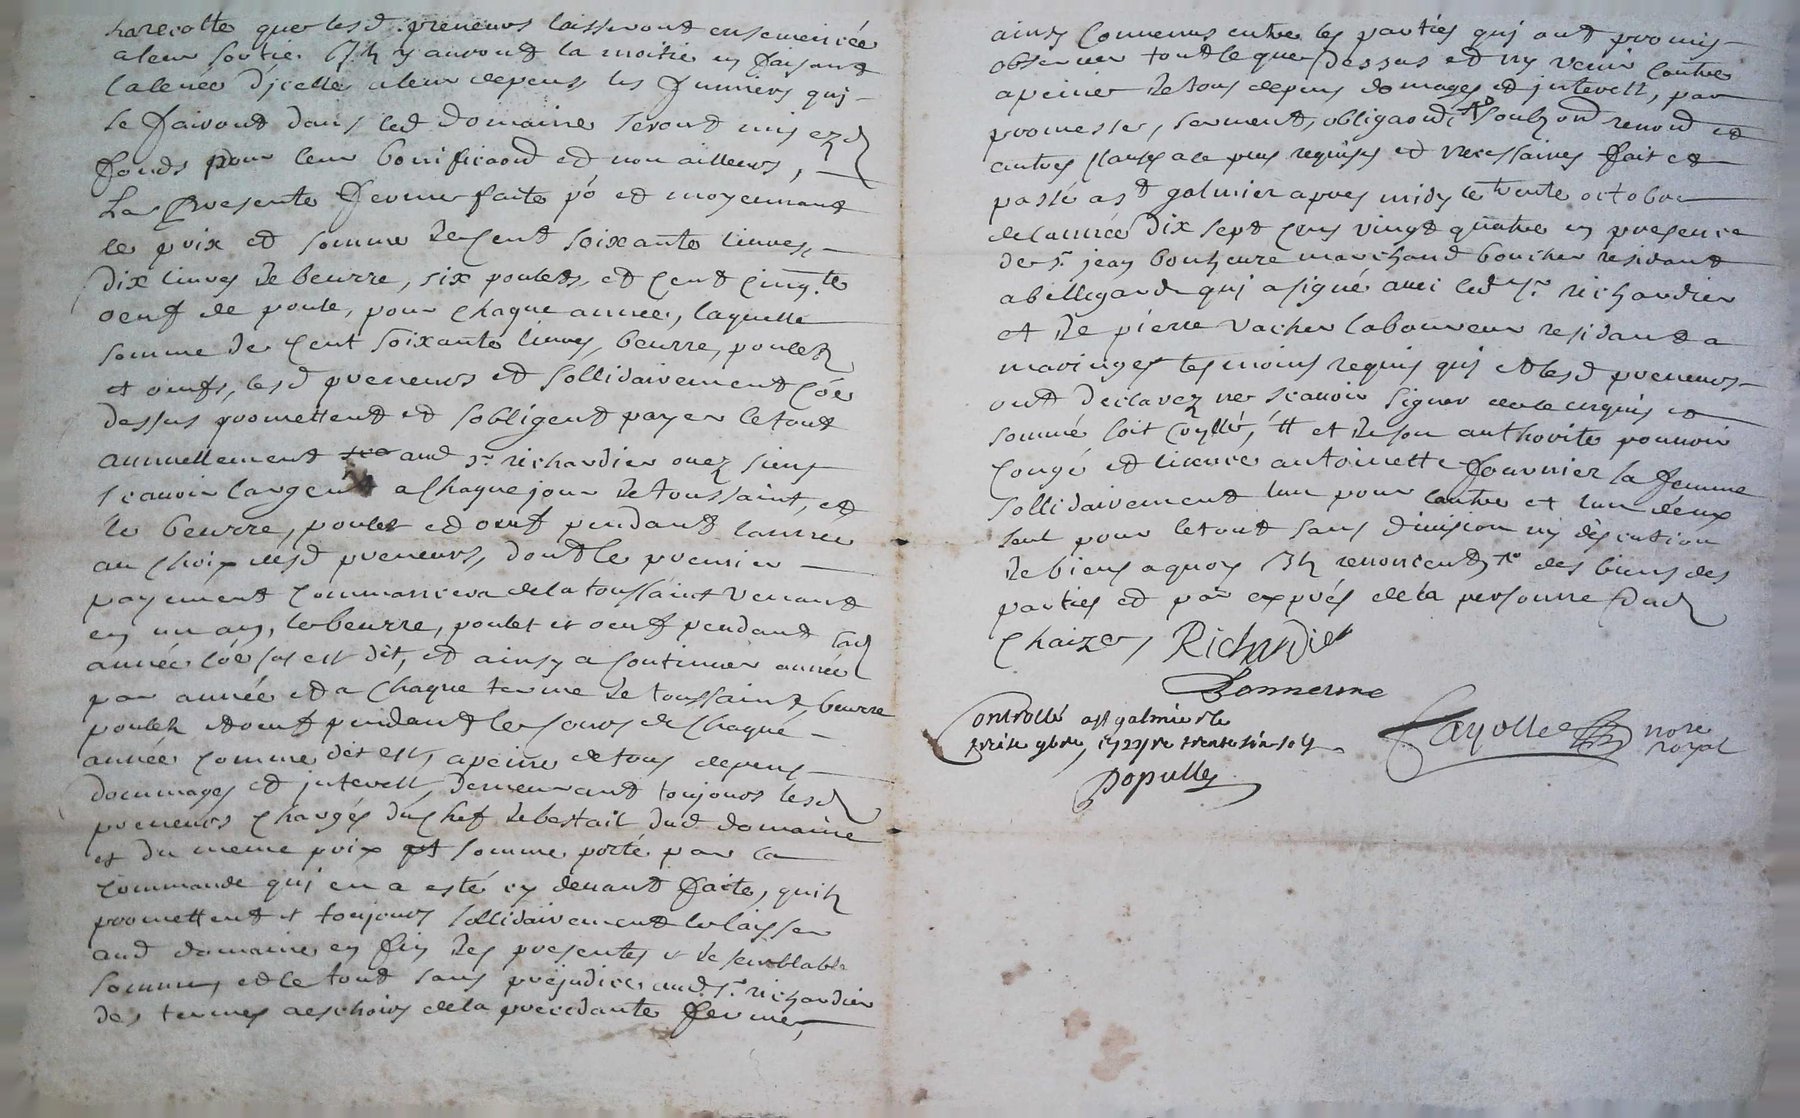 la recolte que lesd. preneurs laisseront ensemencée
a leur sortie Ilz y auront la moitié en faisant
la levée d'jcelle a leur depens les fumiers quj
se fairont dans led domaine seront mis ezd
fonds pour leur bonificaond et non ailleurs,
La Presente ferme faite pó et moyennant
le prix et somme de Cent soixante liures,
dix liures de beurre, six poulets, et Cent Cinqte
oeuf de poule, pour Chaque année, laquelle
somme de Cent soixante liures, beurre, poulez
et oeufs, lesd preneurs et sollidairement Cóe
dessus promettent et sobligent payer le tout
annuellement aud sr. richardier ouez siens
scauoir largent a Chaque jour de toussaint, et
le beurre, poulet et oeuf pendant lannée
au Choix desd preneurs, dont le premier
payement Commancera de la toussaint venant
en un an, le beurre, poulet et oeuf pendant lad
année Cóe sus est dit, et ainsy a Continuer année
par année et a Chaque terme de toussaint, beurre
poulez et oeuf pendant le Cours de Chaque
année Comme dit est, a peine de tous depens
dommages et jnterestz, demeurant toujours lesd
preneurs Chargés du Chef de bestail dud domaine
et du meme prix et somme porté par la
Commande quj en a esté cy deuant faite, quilz
promettent et toujours sollidairement le laisser
aud domaine en fin des presentes et de semblable
somme, et le tout sans prejudice aud. sr. richardier
des termes aeschoirs de la precedante ferme,
ainsy Conuenus entre les parties quj ont promis
obseruer tout le que dessus et ny venir Contre
a peine de tous depens domages et jnterestz, par
promesse, serment, obligaond soubzond renond et
autres Clauses a ce plus requises et necessaires fait et
passé a st galmier apres midy le trente octobre
de lannée dix sept Cens vingt quatre en presence
de sr. jean bonheure marchand boucher residant
a bellegarde quj a signé auec led sr. richardier
et de pierre vacher laboureur residant a
maringes tesmoins requis quj et lesd preneurs
ont declarez ne scauoir signer de ce enquis et
sommé soit Coyllé, # et de son authorité pouuoir
Congé et licence antoinette fournier sa femme
sollidairement lun pour lautre et lun deux
seul pour le tout sans diuision ny discution
de biens a quoy Ilz renoncent # des biens des
parties et par exprés de la personne dud
Chaize, Richardier
Bonneure
Controllé a st galmier le
treize 9bre 1724 Rc trente six sols
Dopulle
Cayolle nore
royal